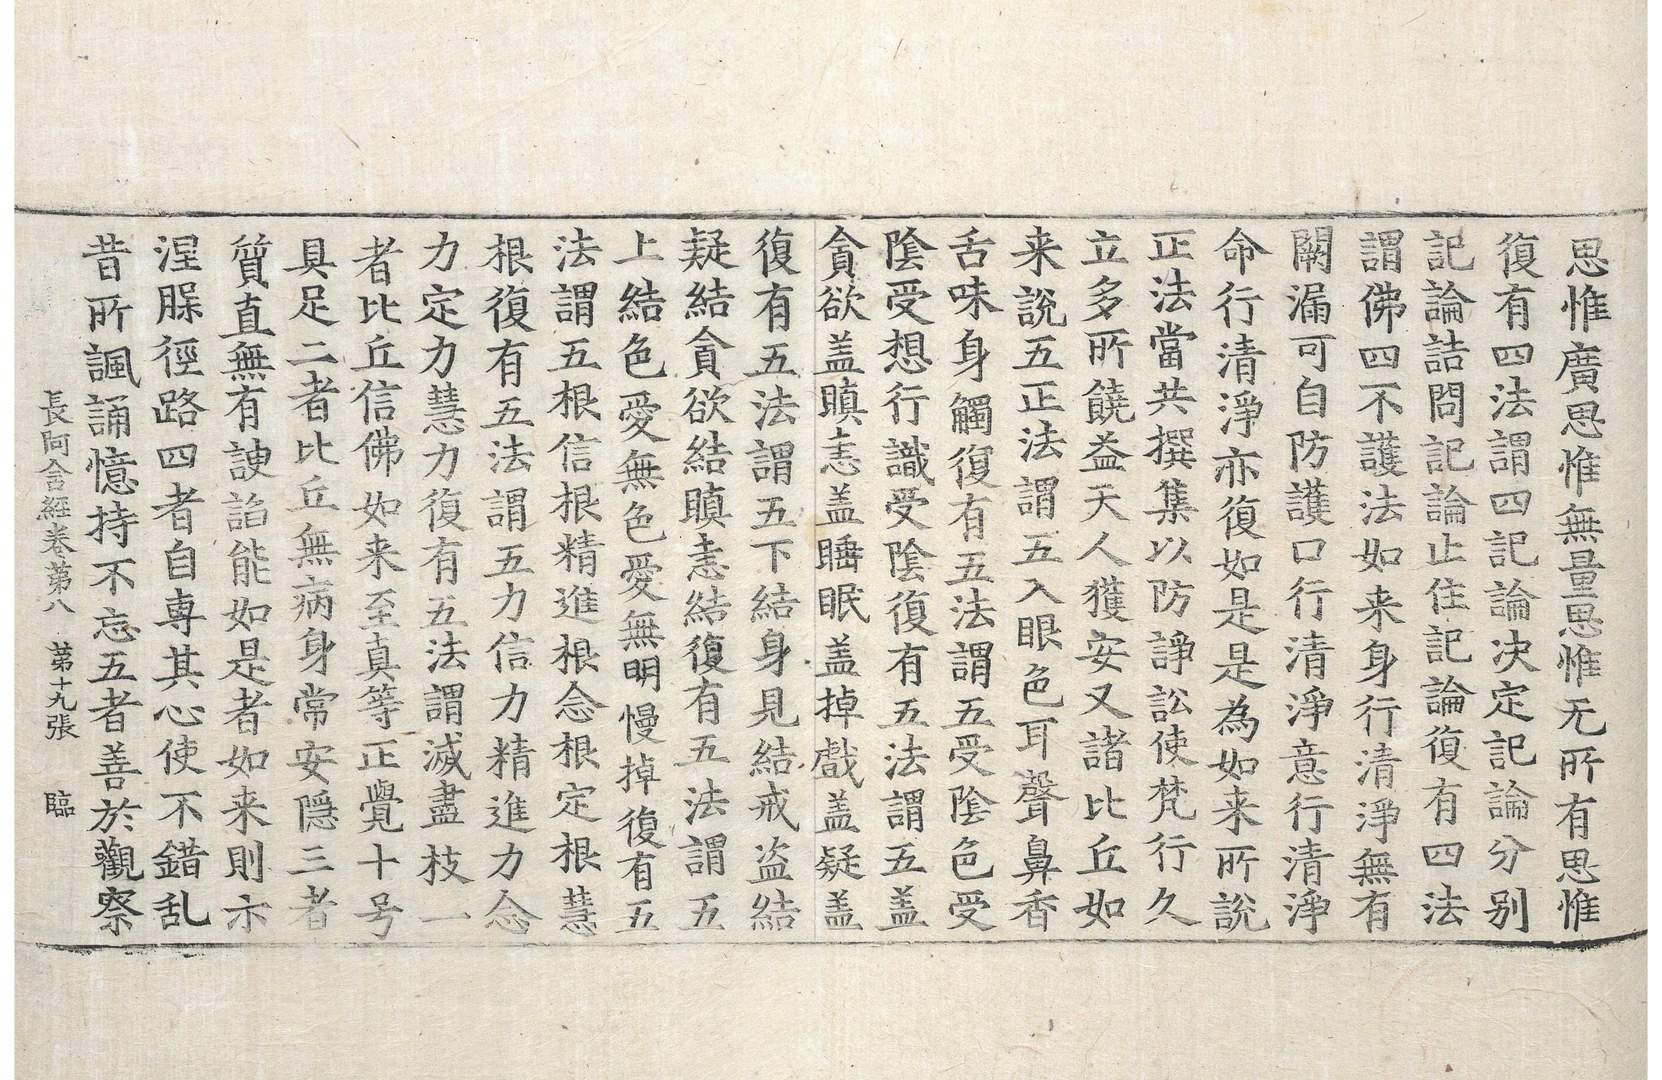 思惟廣思惟無量思惟无所有思惟
復有四法謂四記論决定記論分别
記論詰問記論止住記論復有四法
謂佛四不護法如来身行清淨無有
闕漏可自防護口行清淨意行清淨
命行清淨亦復如是是為如来所說
正法當共撰集以防諍訟使梵行久
立多所饒益天人獲安又諸比丘如
来說五正法謂五入眼色耳聲鼻香
舌味身觸復有五法謂五受陰色受
陰受想行識受陰復有五法謂五盖
貪欲盖瞋恚盖睡眠盖掉戲盖疑盖
復有五法謂五下結身見結戒盗結
疑結貪欲結瞋恚結復有五法謂五
上結色愛無色愛無明慢掉復有五
法謂五根信根精進根念根定根慧
根復有五法謂五力信力精進力念
力定力慧力復有五法謂滅盡枝一
者比丘信佛如来至真等正覺十号
具足二者比丘無病身常安隱三者
質直無有諛諂能如是者如来則示
涅腂徑路四者自専其心使不錯乱
昔所諷誦憶持不忘五者善於觀察
長阿含經卷第八　第十九張　臨